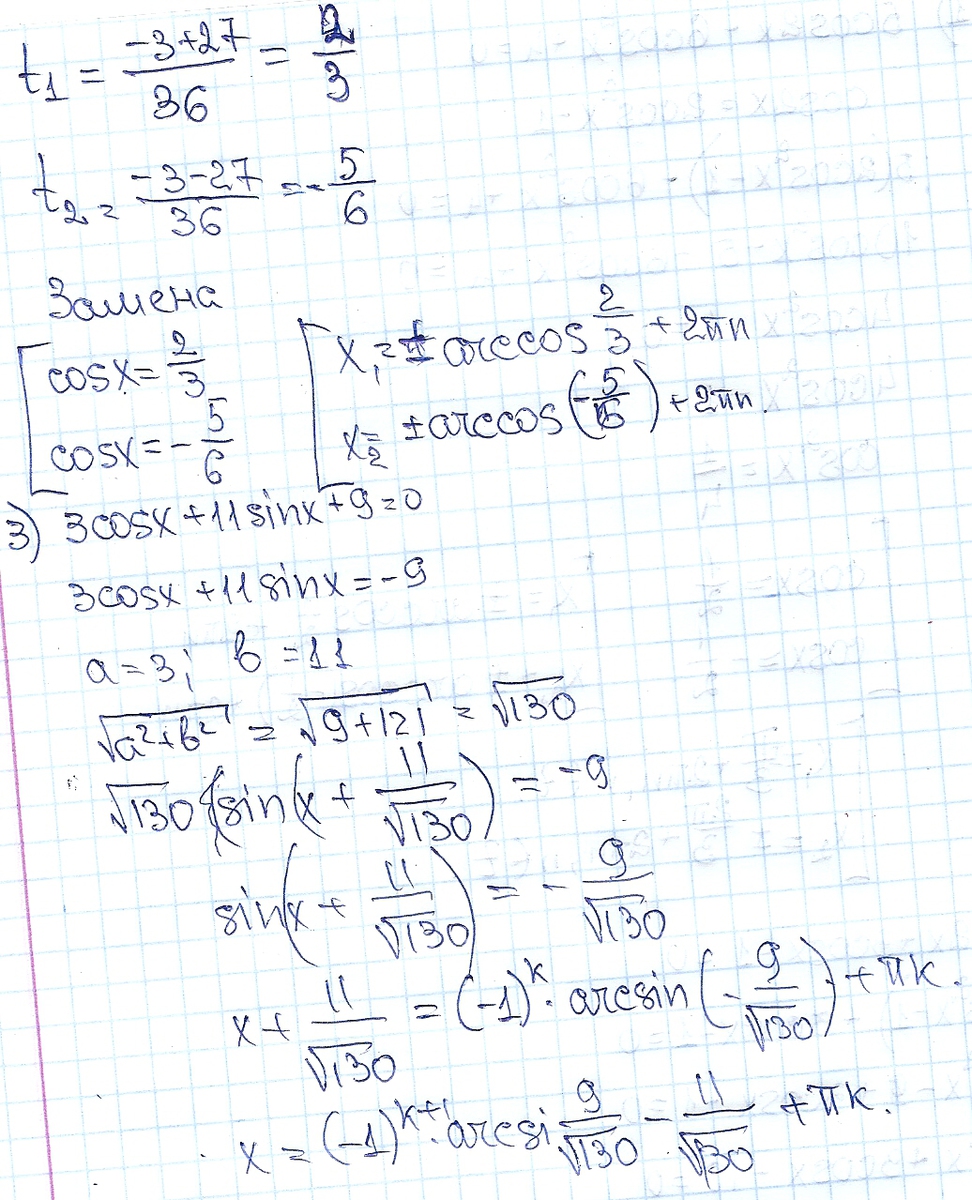 t₁ = (-3+27)/36 = 2/3
t₂ = (-3-27)/36 = -5/6
Замена
[ cosx = 2/3 [ x₁ = ± arccos 2/3 + 2πn
[ cosx = -5/6 [ x₂ = ± arccos(-5/6) + 2πn.
3) 3cosx + 11sinx + 9 = 0
3cosx + 11sinx = -9
a = 3; b = 11
√(a²+b²) = √(9+121) = √130
√130 (sin(x + 11/√130) = -9
sin(x + 11/√130) = -9/√130
x + 11/√130 = (-1)ᵏ · arcsin(-9/√130) + πk.
x = (-1)ᵏ⁺¹ · arcsi 9/√130 - 11/√130 + πk.